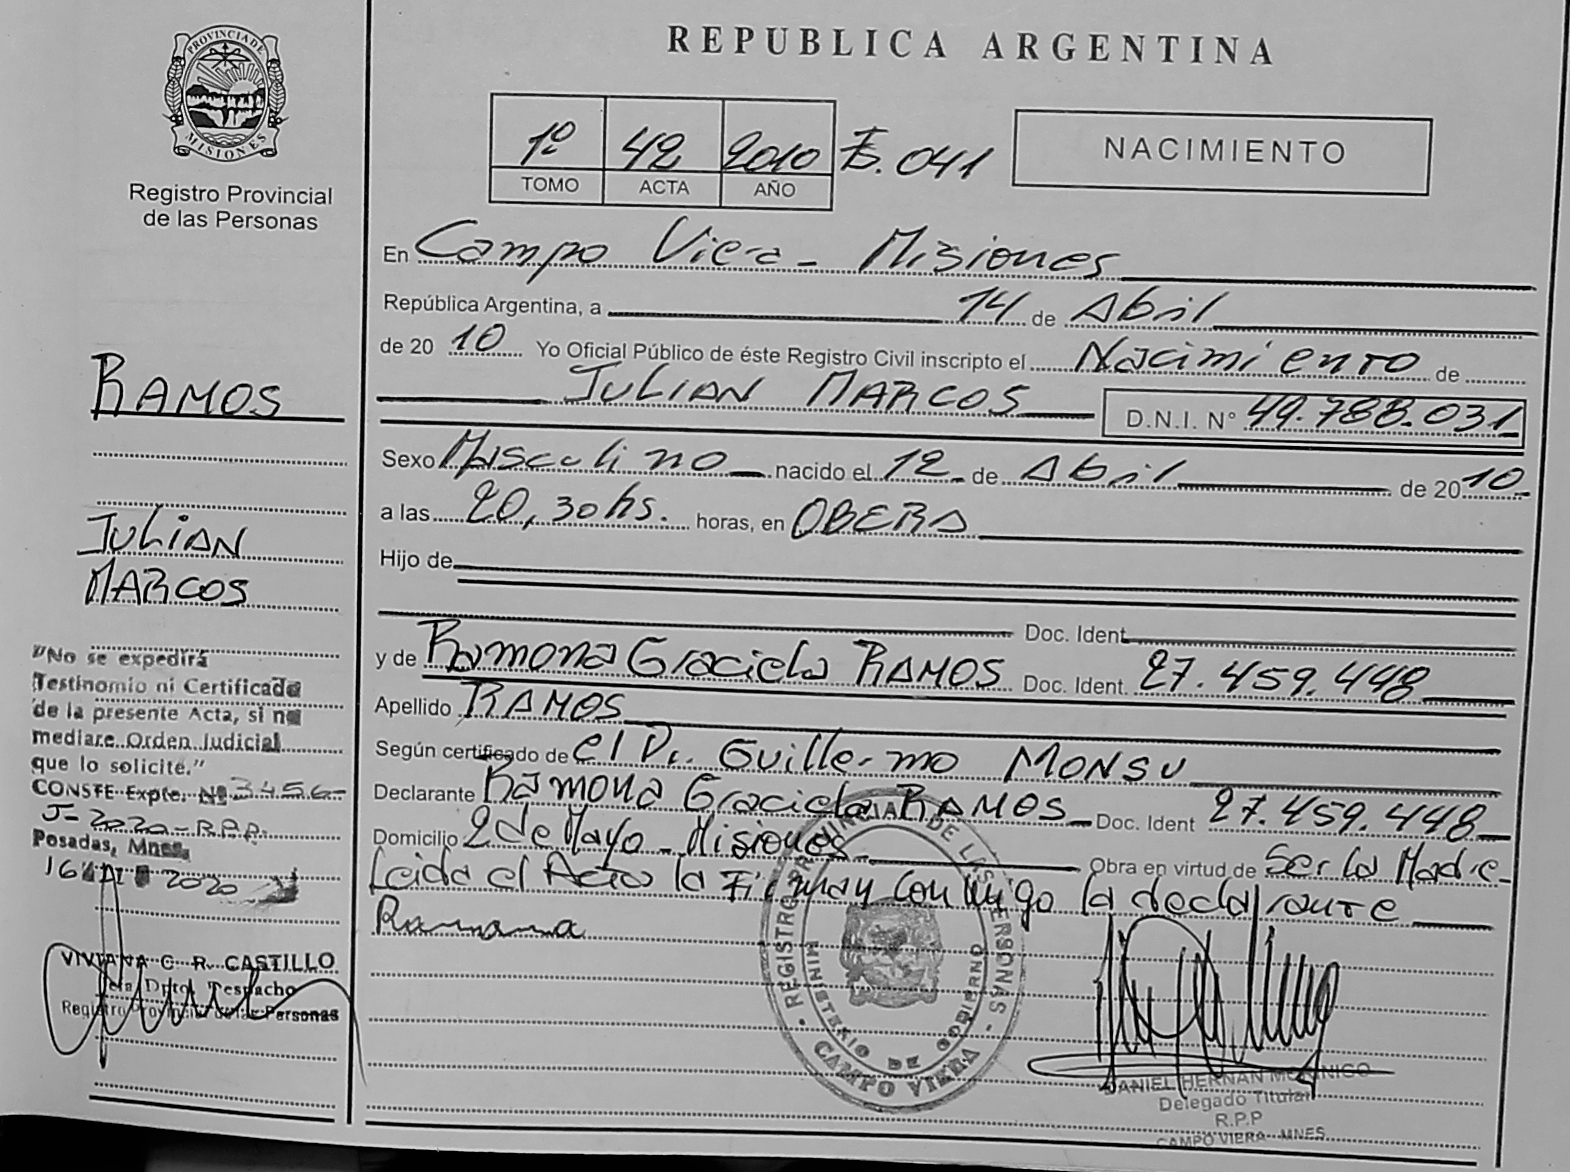 PROVINCIA DE
MISIONES
Registro Provincial
de las Personas
RAMOS
JULIAN
MARCOS
"No se expedirá
Testinomio ni Certificado
de la presente Acta, si no
mediare Orden Judicial
que lo solicite."
CONSTE Expte. Nº 3456-
J-2020-R.P.P.
Posadas, Mnes,
16 2020
VIVIANA C. R. CASTILLO
Despacho
Registro Provincial de las Personas
REPUBLICA ARGENTINA
1º 42 2010 Fs. 041
TOMO ACTA AÑO
NACIMIENTO
En Campo Viera - Misiones
República Argentina, a 14 de Abril
de 20 10 Yo Oficial Público de éste Registro Civil inscripto el Nacimiento de
JULIAN MARCOS D.N.I. Nº 49.788.031
Sexo Masculino nacido el 12 de Abril de 20 10
a las 20,30 hs. horas, en OBERA
Hijo de
Doc. Ident.
y de Ramona Graciela RAMOS Doc. Ident. 27.459.448
Apellido RAMOS
Según certificado de el Dr. Guillermo MONSU
Declarante Ramona Graciela RAMOS Doc. Ident 27.459.448
Domicilio 2 de Mayo - Misiones Obra en virtud de Ser la Madre-
Leida el Acta la Firman conmigo la declarante
Ramona
REGISTRO PROVINCIAL DE LAS PERSONAS
MINISTERIO DE GOBIERNO
CAMPO VIERA
DANIEL HERNAN
Delegado Titular
R.P.P
CAMPO VIERA - MNES